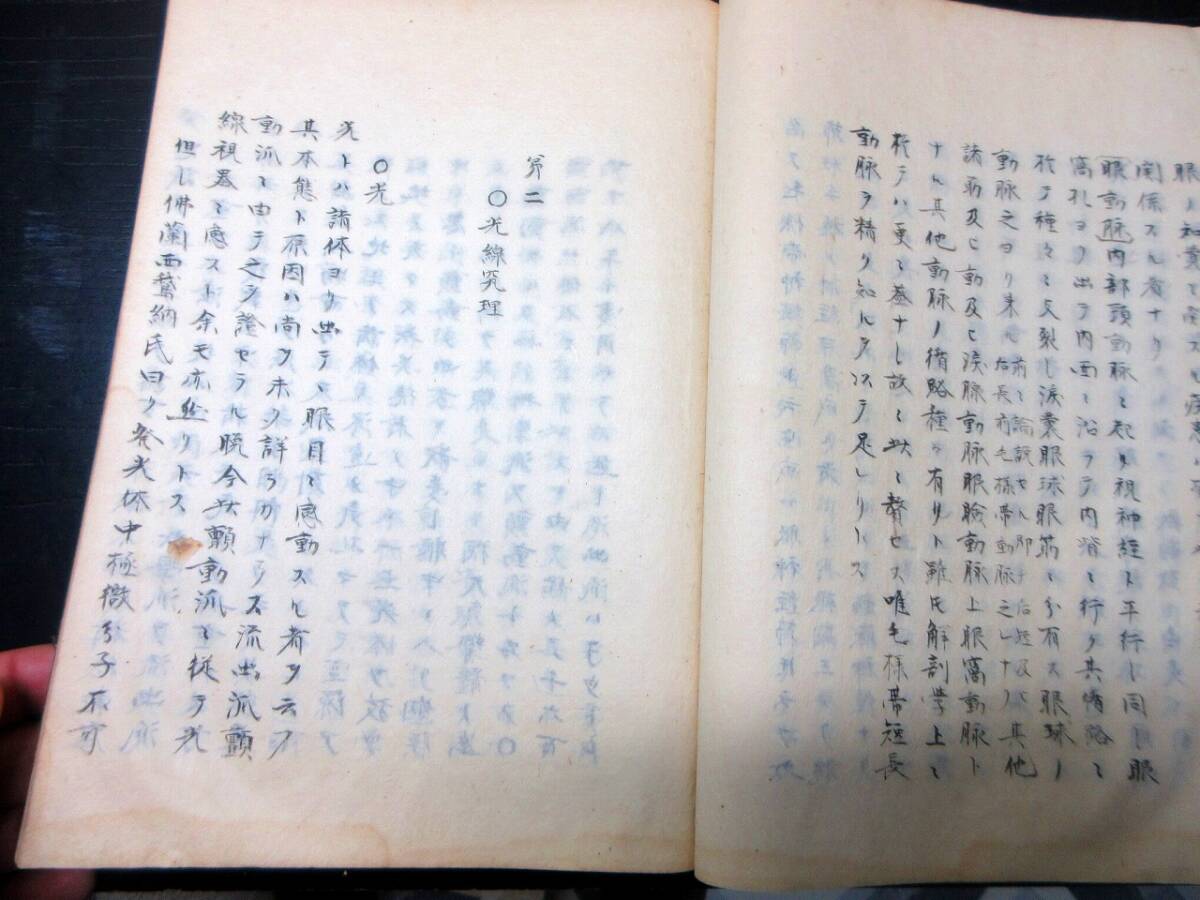 関係スル者ナリ
眼動脈内部頭動脈ニ起リ視神経ト平行シ同眼
窩孔ヨリ出テ内面ニ沿ラテ内眥ニ行ク其循路ニ
於テ種々ニ支裂シ涙嚢眼球眼筋ニ分有ス眼球ノ
動脈之ヨリ来ル
前ニ論説セル即チ后短及ヒ
后長前毛様帯動脈之レナリ
其他
諸筋及ヒ動及ヒ涙腺動脈眼瞼動脈上眼窩動脈ト
ナル其他動脉ノ循路種々有リト雖氏解剖学上ニ
於テハ更ニ益ナシ故ニ玆ニ贅セス唯毛様帯短長
動脉ヲ精ク知ルヲ以テ足レリトス
第二
〇光線究理
〇光
光トハ諸体ヨリ出テ眼目ニ感動スル者ヲ云フ
其本態ト原因ハ尚ヲ未タ詳ラカナラス流出派顫
動派ニ由テ之ヲ證セラル晩今玆顫動派ニ従テ光
線視器ニ感スト余モ亦然リトス
但シ佛蘭西鵞納氏曰ク発光体中極微分子不可